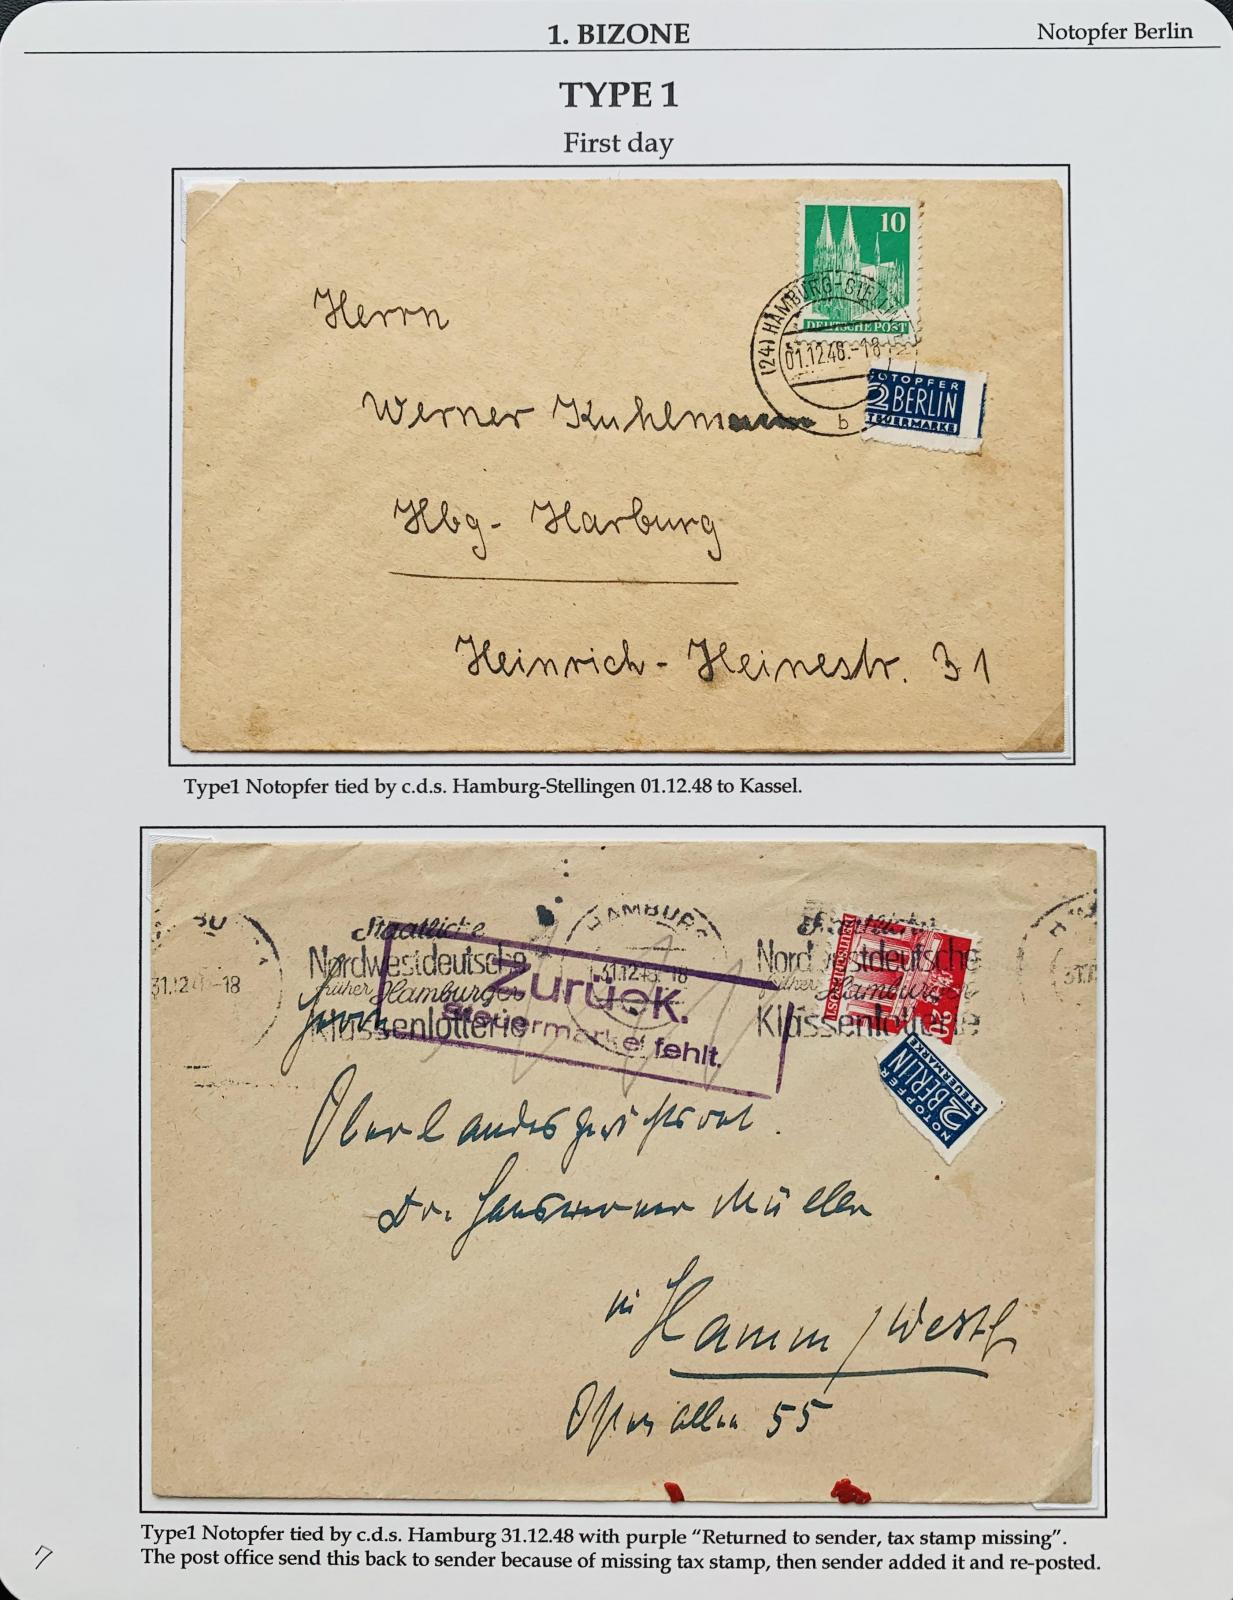 1. BIZONE
Notopfer Berlin
TYPE 1
First day
10
DEUTSCHE POST
(24) HAMBURG-STELLINGEN
01.12.48.-18
b
NOTOPFER
2 BERLIN
STEUERMARKE
Herrn
Werner Kuhlmann
Hbg- Harburg
Heinrich-Heinestr. 31
Type1 Notopfer tied by c.d.s. Hamburg-Stellingen 01.12.48 to Kassel.
HAMBURG
31.12.48.-18
Staatliche
Nordwestdeutsche
früher Hamburger
Klassenlotterie
Staatliche
Nordwestdeutsche
früher Hamburger
Klassenlotterie
Zurück.
Steuermarke fehlt.
20
NOTOPFER
2 BERLIN
STEUERMARKE
Oberlandesgerichtsrat
Dr. Hanswerner Müller
in Hamm / Westf
55
Type1 Notopfer tied by c.d.s. Hamburg 31.12.48 with purple “Returned to sender, tax stamp missing”.
The post office send this back to sender because of missing tax stamp, then sender added it and re-posted.
7